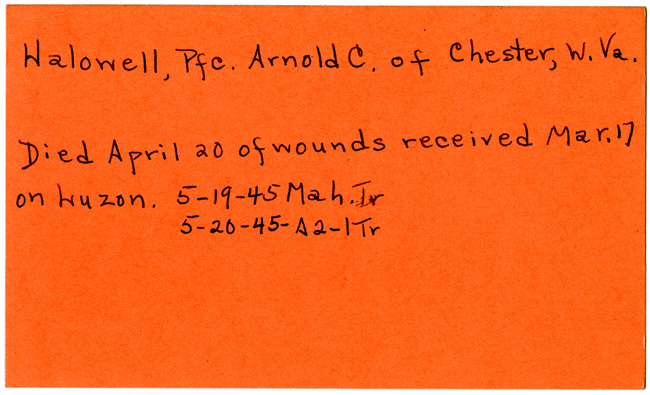 Halowell, Pfc. Arnold C. of Chester, W. Va.
Died April 20 of wounds received Mar. 17
on Luzon. 5-19-45 Mah. Tr
5-20-45-A2-1 Tr